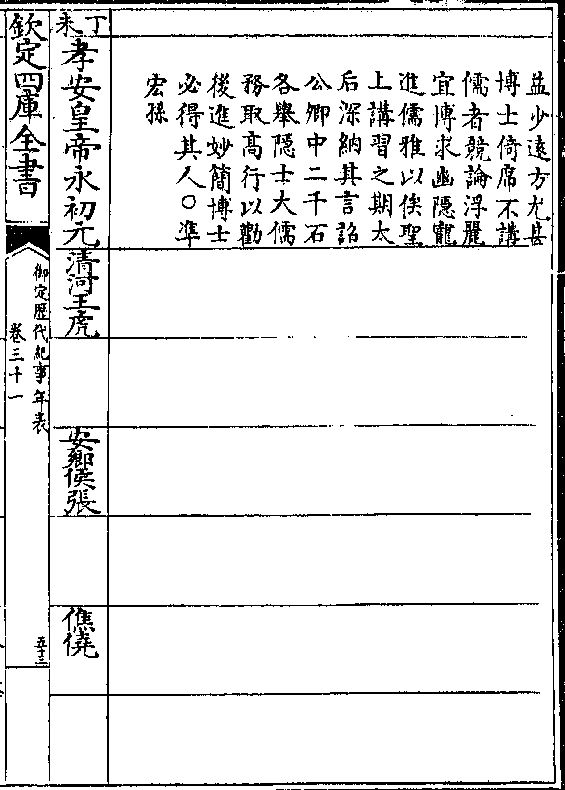 益少遠方尤甚
博士倚席不講
儒者競論浮麗
宜博求幽隱寵
進儒雅以俟聖
上講習之期太
后深納其言詔
公卿中二千石
各舉隱士大儒
務取高行以勸
後進妙簡博士
必得其人○準
宏孫
丁未
孝安皇帝永初元
清河王虎
安鄉侯張
僬僥
欽定四庫全書
御定歷代紀事年表
卷三十一
五十三